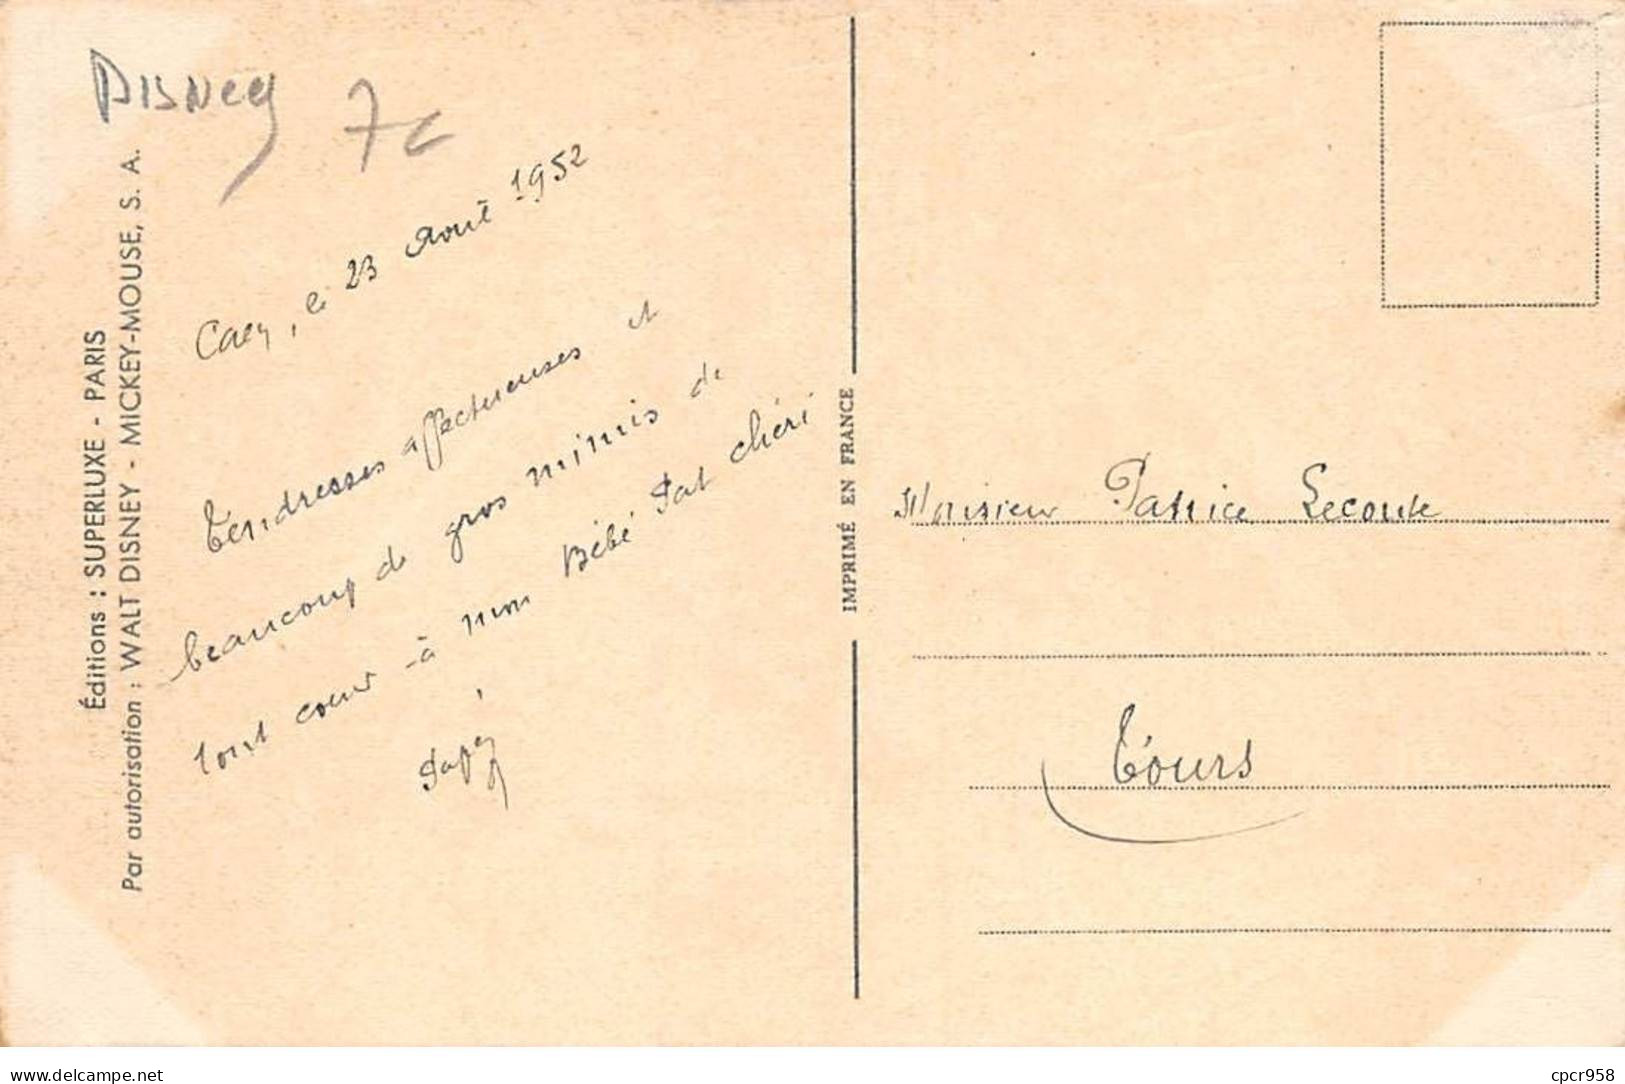 DISNEY 7c
Éditions : SUPERLUXE - PARIS
Par autorisation : WALT DISNEY - MICKEY-MOUSE, S. A.
Caen, le 23 Août 1952
Tendresses affectueuses et
beaucoup de gros mimis de
tout coeur à mon Bébé Pat chéri
Papy
IMPRIMÉ EN FRANCE
Monsieur Patrice Leconte
Tours
delcampe.net
cpcr958